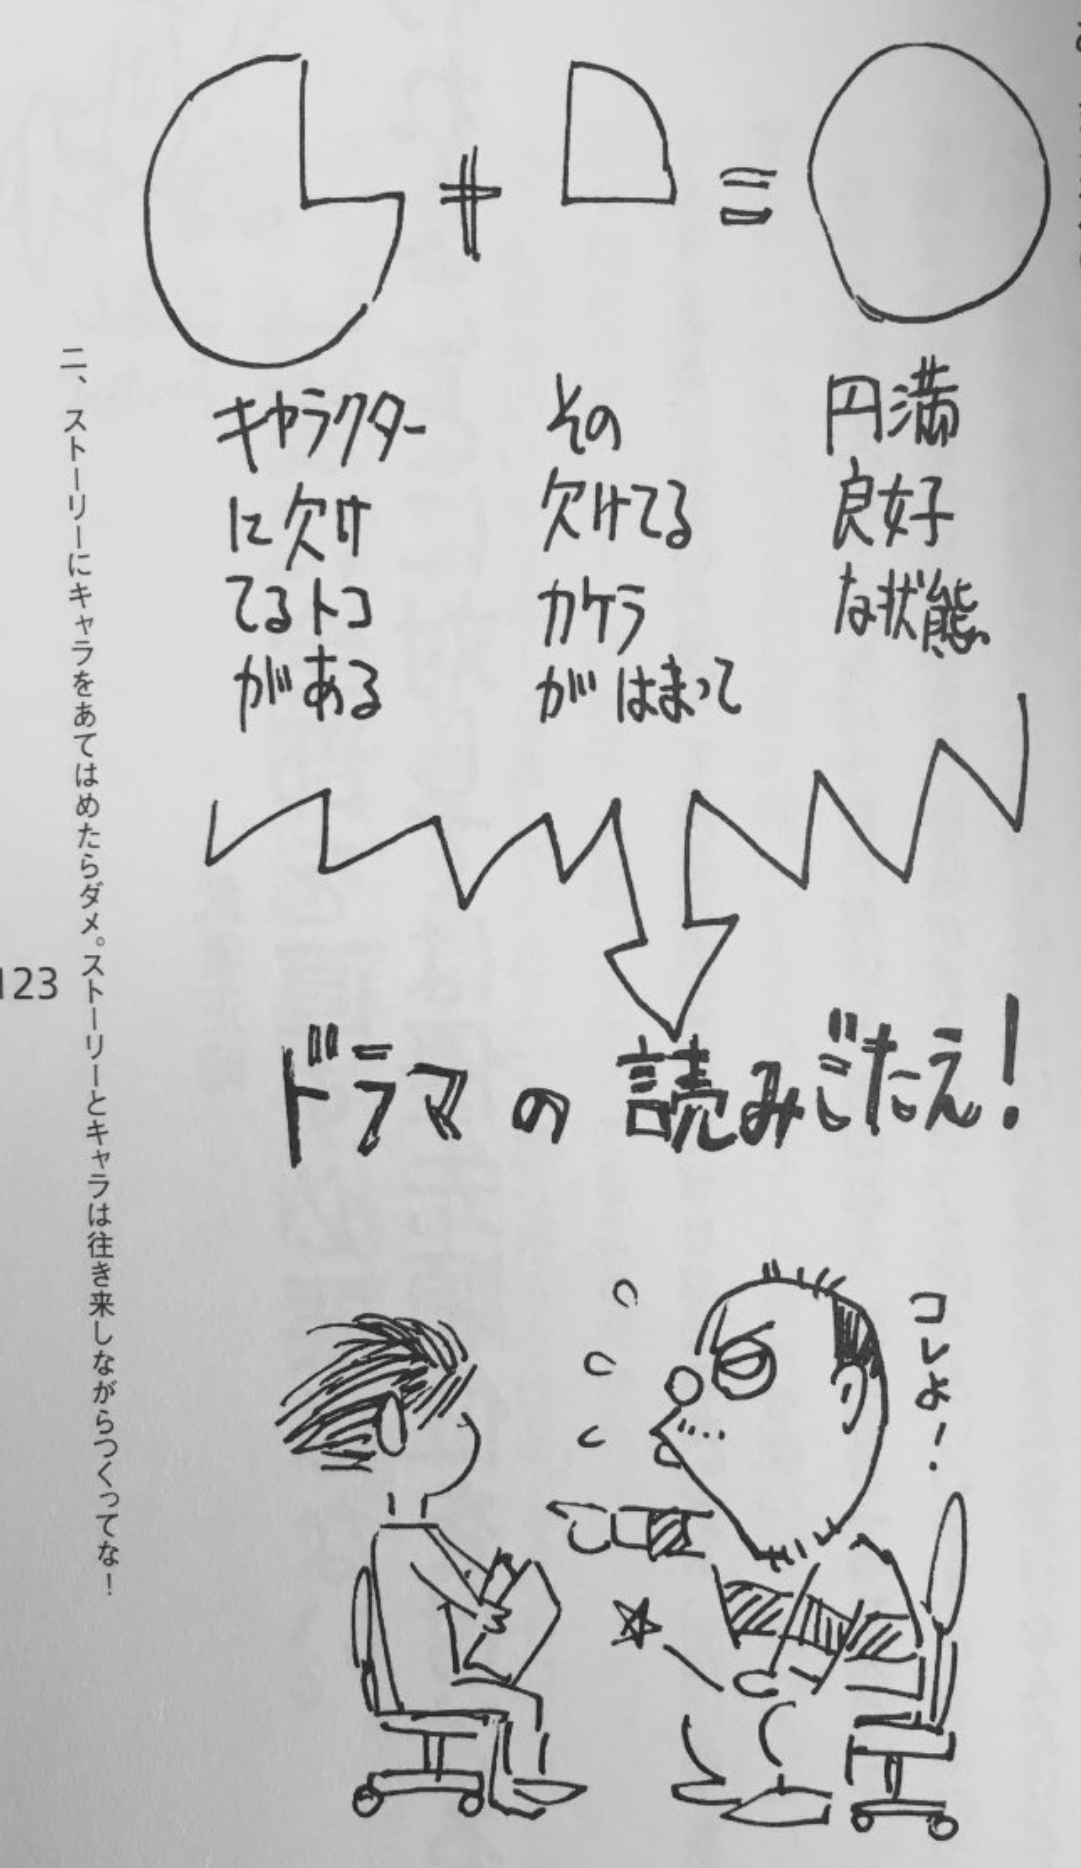 キャラクター
に欠け
てるトコ
がある
その
欠けてる
カケラ
がはまって
円満
良好
な状態
ドラマの読みごたえ!
コレよ!
二、ストーリーにキャラをあてはめたらダメ。ストーリーとキャラは往き来しながらつくってな!
123